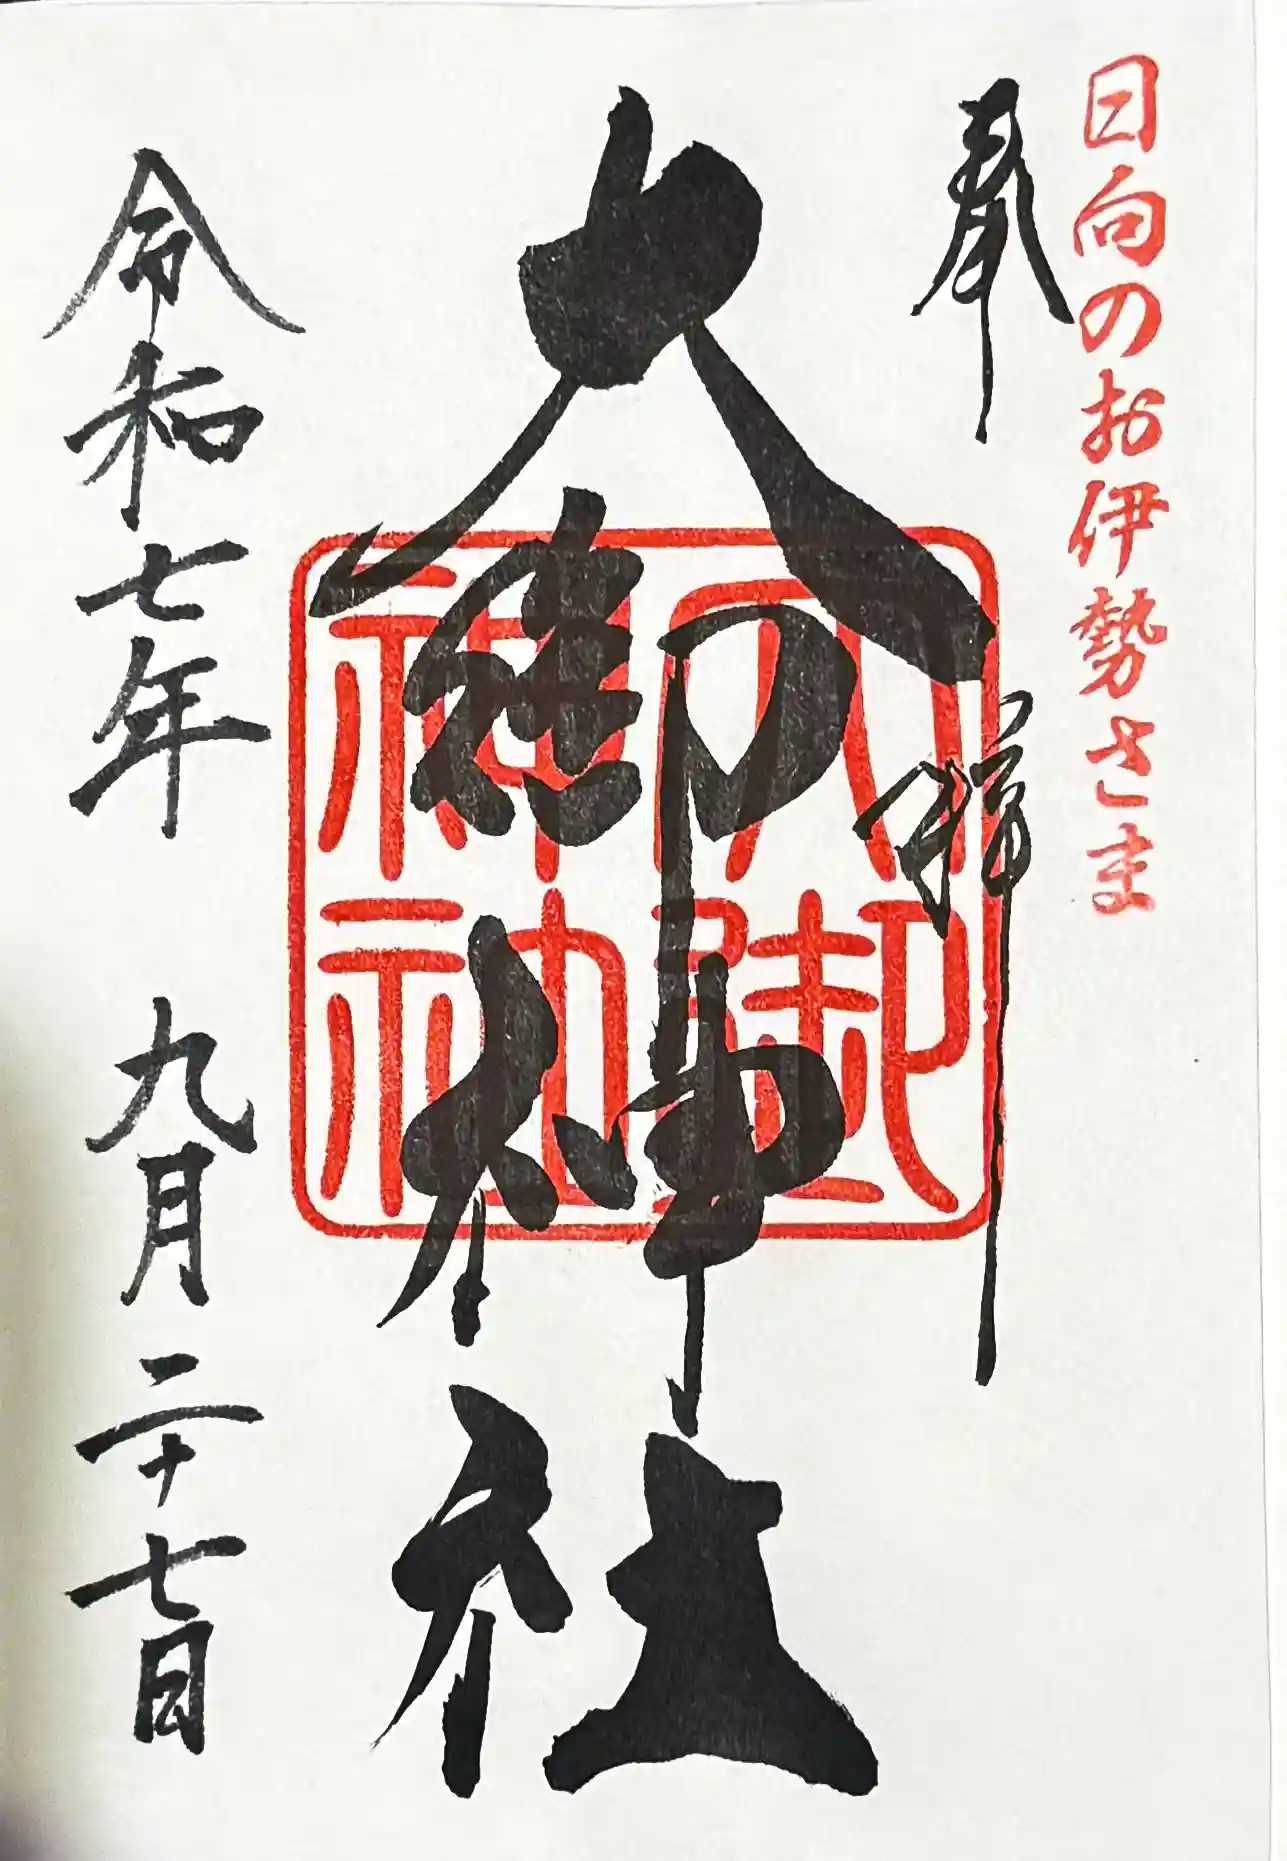 日向のお伊勢さま
奉拝
大御神社
大御神社
令和七年 九月二十七日